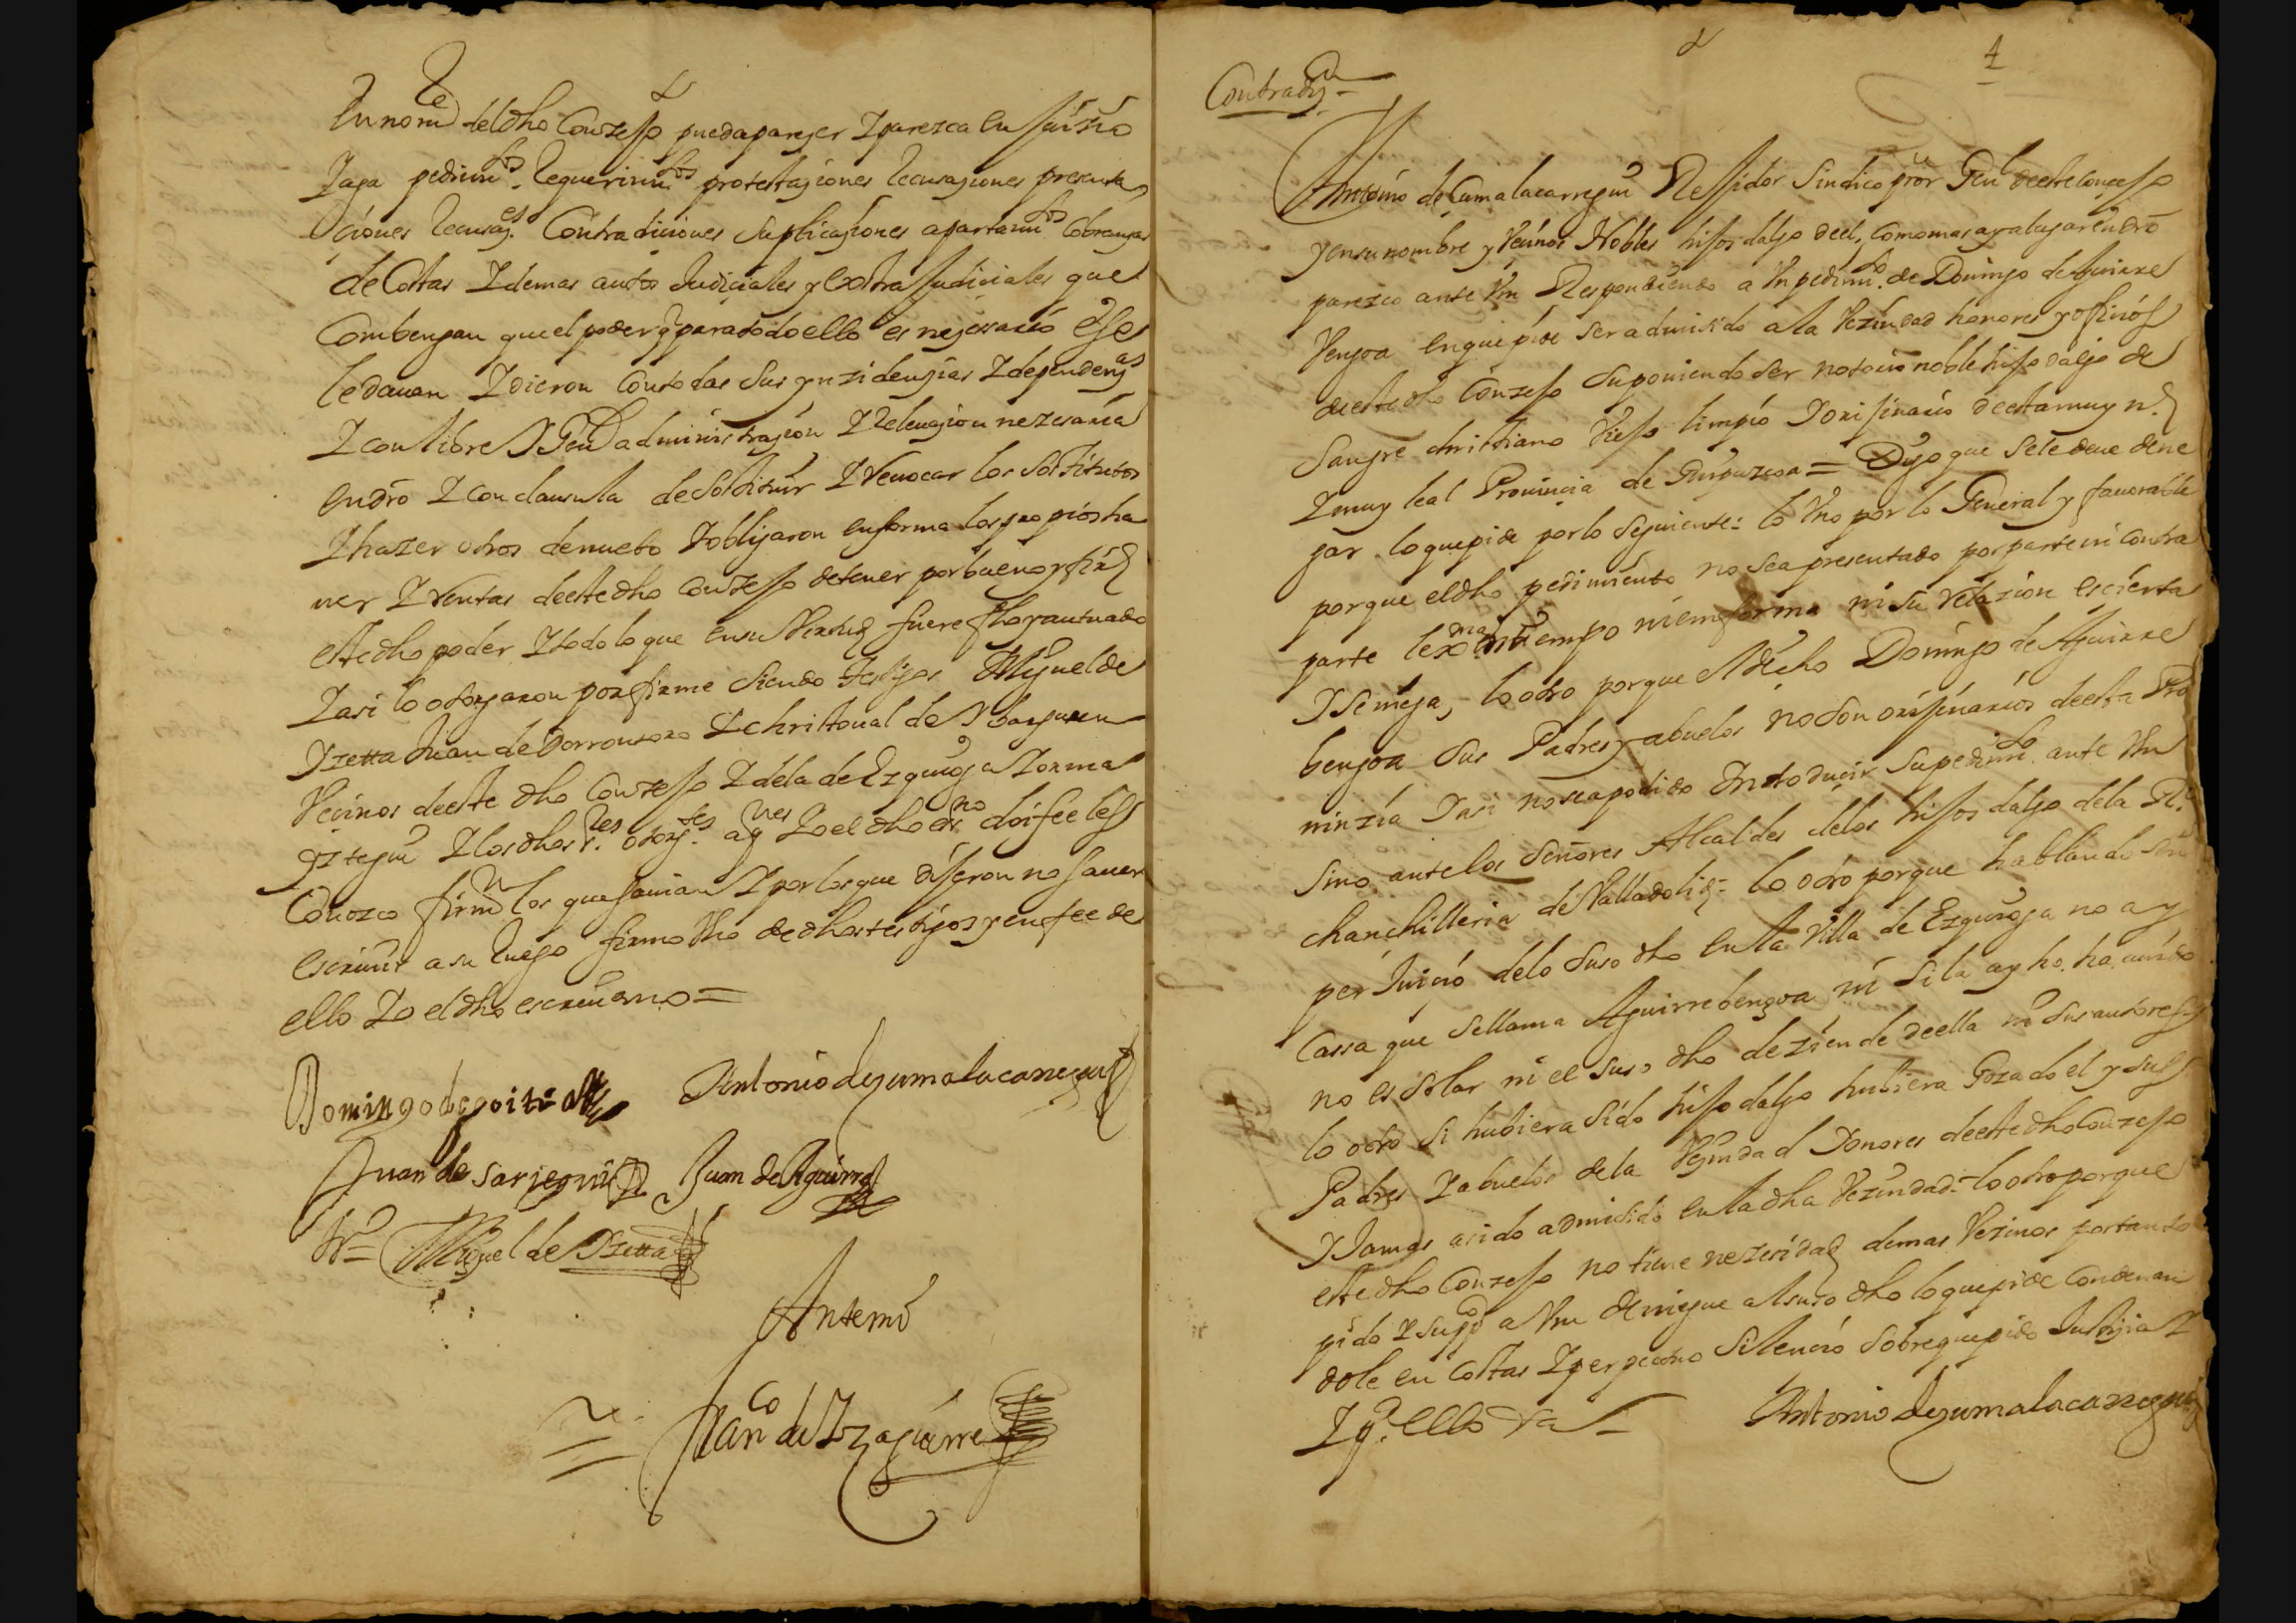 En nom^e del dho Conzejo pueda parezer Y parezca en juiZio
Y aga pedim^tos requerim^tos protestaziones recusaziones presenta
ciones recusaz^es Contradiciones suplicaziones apartam^tos cobranzas
de Costas Y demas autos Judiciales y extra Judiciales que
Combengan que el poder q para todo ello es nezessario ese
le davan Y dieron con todas sus ynzidenzias Y dependenz^as
Y con libre Y Gen^l administrazion Y relevazion nezesaria
en dro Y con clausula de sostituir Y revocar los sostitutos
Y hazer otros de nuebo Y obligaron en forma los propios ha
ver Y rentas deeste dho conzejo de tener por bueno y firme
este dho poder Y todo lo que en su virtud fuere fho y autuado
Y asi lo otorgaron por firme siendo testigos Miguel de
Yzetta Juan de Dorronsoro Y christoual de Ybarguren
Vecinos deeste dho Conzejo Y dela de Ezquioga Y orma
yztegui Y los dhos s^res otorg^tes a q^nes Yo el dho es^no doi fee les
Conozco firm^n los que savian Y por los que dijeron no saver
escriuir a su ruego firmo Vno de dhos testigos y en fee de
ello Yo el dho escriuano =
Domingo de goitia
Antonio de zumalacarregui
Juan de sarjegui
Juan de Aguirre
t^o = Miguel de Yzetta
Ante mi
Fran^co de Yzaguirre
4
Contradiz^on
Antonio de Cumalacarregui Rejidor Sindico pror Gen^l deeste conzejo
y en su nombre y vecinos Nobles hijos dalgo de el, como mas aya lugar en dro
parezco ante Vm Respondiendo a Vn pedim^to de Domingo de Aguirre
Vengoa en que pide ser admitido a la Vezindad honores y oficios
de este dho Conzejo suponiendo ser notorio noble hijo dalgo de
Sangre christiano Viejo limpio Y orijinario de esta muy n.
Y muy leal Provincia de Guipuzcoa = Digo que se le deve dene
gar lo que pide por lo siguiente: lo Vno por lo General y favorable
porque el dho pedimiento no sea presentado por parte ni contra
parte lex^ma en tiempo ni en forma ni su relazion es cierta
Y se niega, lo otro porque el dicho Domingo de Aguirre
bengoa sus Padres y abuelos no son orijinarios deesta Pro
vinzia Y asi no se a podido Introducir su pedim^to ante Vm
Sino ante los Señores Alcaldes de los hijos dalgo de la R^l
chanchilleria de Valladolid = lo otro porque hablando sin
per Juicio de lo suso dho en la Villa de Ezquioga no ay
Cassa que se llama Aguirrebengoa ni si la ay ho, ha auido
no es solar ni el suso dho deziende de ella ni sus autores y
lo otro si hubiera sido hijo dalgo hubiera Gozado el y sus
Padres Y abuelos de la Vezindad Y onores deeste dho Conzejo
Y Jamas a sido admitido en la dha Vezindad = lo otro porque
este dho Conzejo no tiene nezesidad de mas Vezinos por tanto
pido Y sup^co a Vm deniegue al suso dho lo que pide Condenan
dole en Costas Y perpetuo silencio sobre que pido Justizia Y
Y p^a ello r^a
Antonio de zumalacarregui